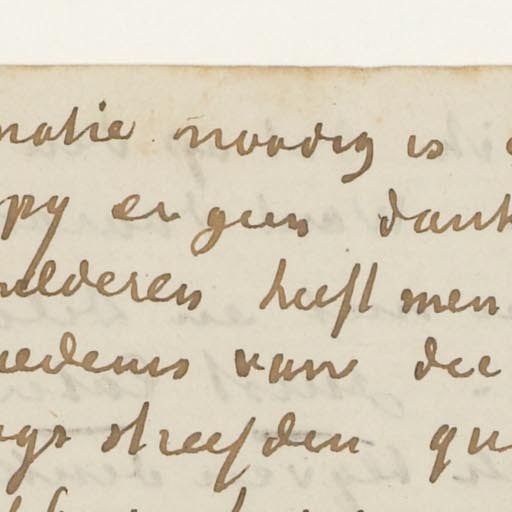 matie noodig is
py er geen dank
ulderen heeft men
redenis van dee
ngs streefden